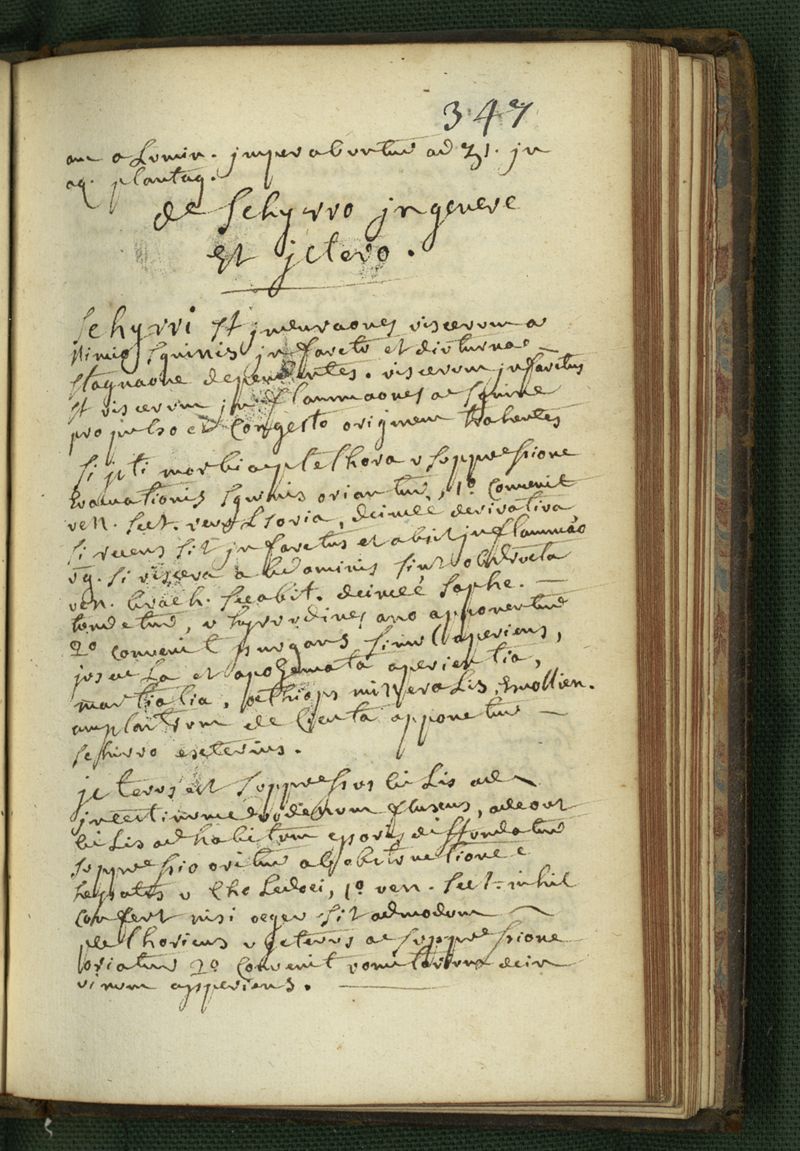 347
jmperabuntur ad ʒ1. jn
aq. plantag.
de Schyrro jn genere
Et jctero.
Schyrri st viscerum a
nimio sguinis jnfarctu et diuturnae
stagnaone dependentes. viscerum jnfarctus
st viscerum jnflammaones a sguine
propulso et congesto originem trahentes
Si jsti morbi a plethora v suppressione
Evacuationis sguinis oriantur, 1º convenit
ven. sect. deinde derivativa
si recens sit jnfarctus et abest jnflammao
vg. si viscera abdominis sint obstructa
ven. brach. deinde saphe.
tundetur, v hyrudines ano apponentur
2º convenit purgans simul aperiens,
juscula et apozemata aperientia,
martialia, oethiops mineralis, Emollien.
amplastrum de Cicuta apponetur
schirro exterius.
jcterus est suppressus bilis ad
jntestinum duodenum fluxus, adeout
bilis ad habitum cporis diffundatur
suppressio oritur ab obstructione
hepatis v choledoci, 1º ven. sect. nihil
confert nisi oeger sit admodum
plethoricus v jcterus a suppressione
oriatur 2º convenit vomitorium dein
vinum apperiens.